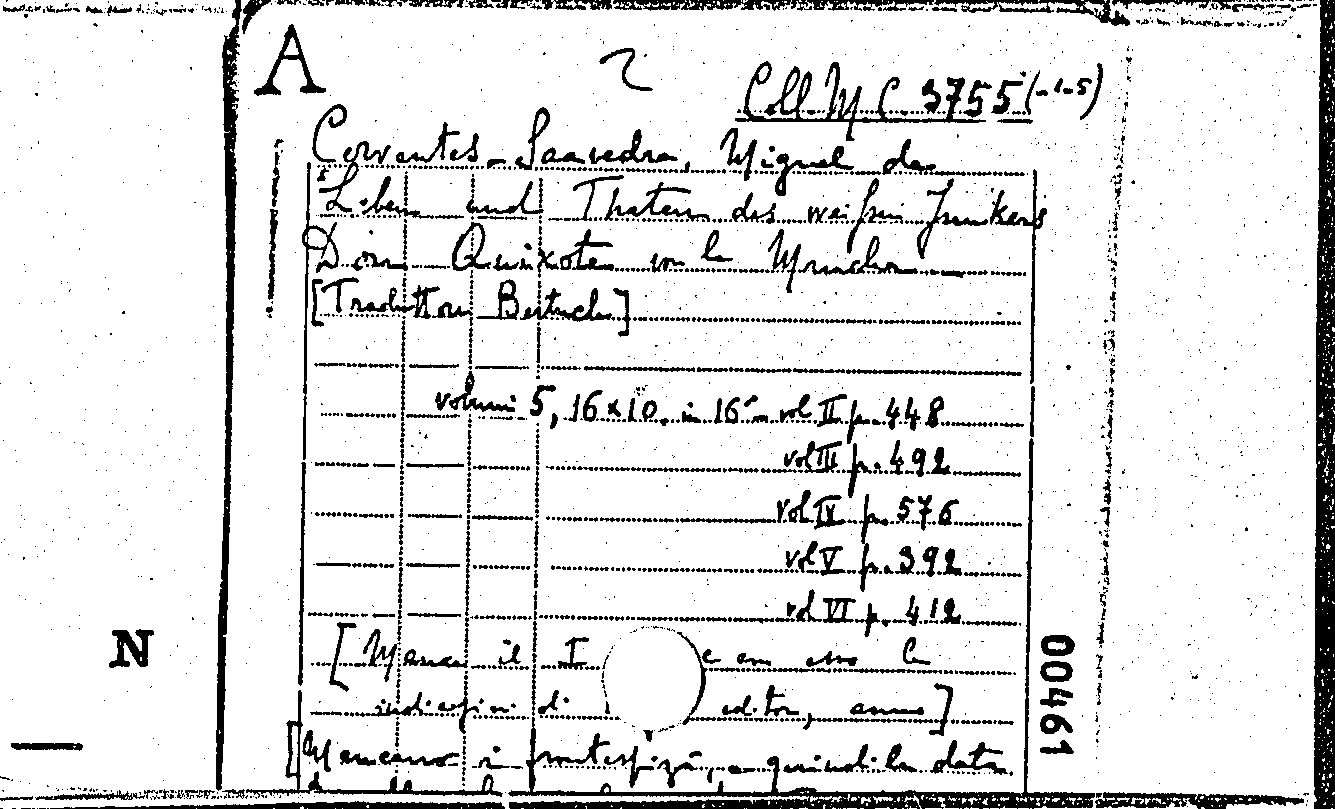 A
2
Coll. M C. 3755 (-1-5)
Cervantes-Saavedra, Miguel de
Leben und Thaten des weisen Junkers
Don Quixote von la Mancha
[Traduttore Bertuch]
volumi 5, 16x10. in 16º vol II p. 448
vol III p. 492
vol IV p. 576
vol V p. 392
vol VI p. 412
[Manca il I e con esso le
N
indicazioni di editor, anno]
[Mancano i frontespizi, quindi la data
00461